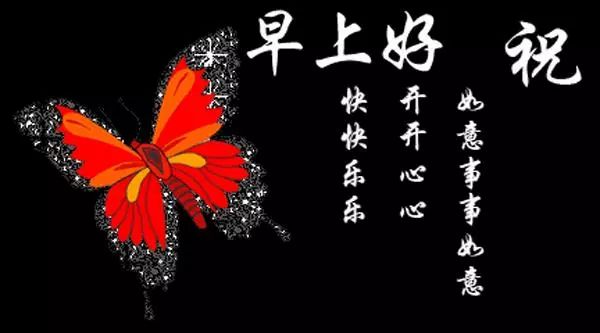 早上好 祝
如意事事如意
开开心心
快快乐乐